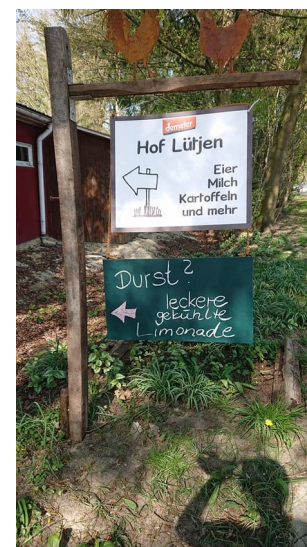 demeter
Hof Lütjen
Eier
Milch
Kartoffeln
und mehr
Durst?
leckere
gekühlte
Limonade